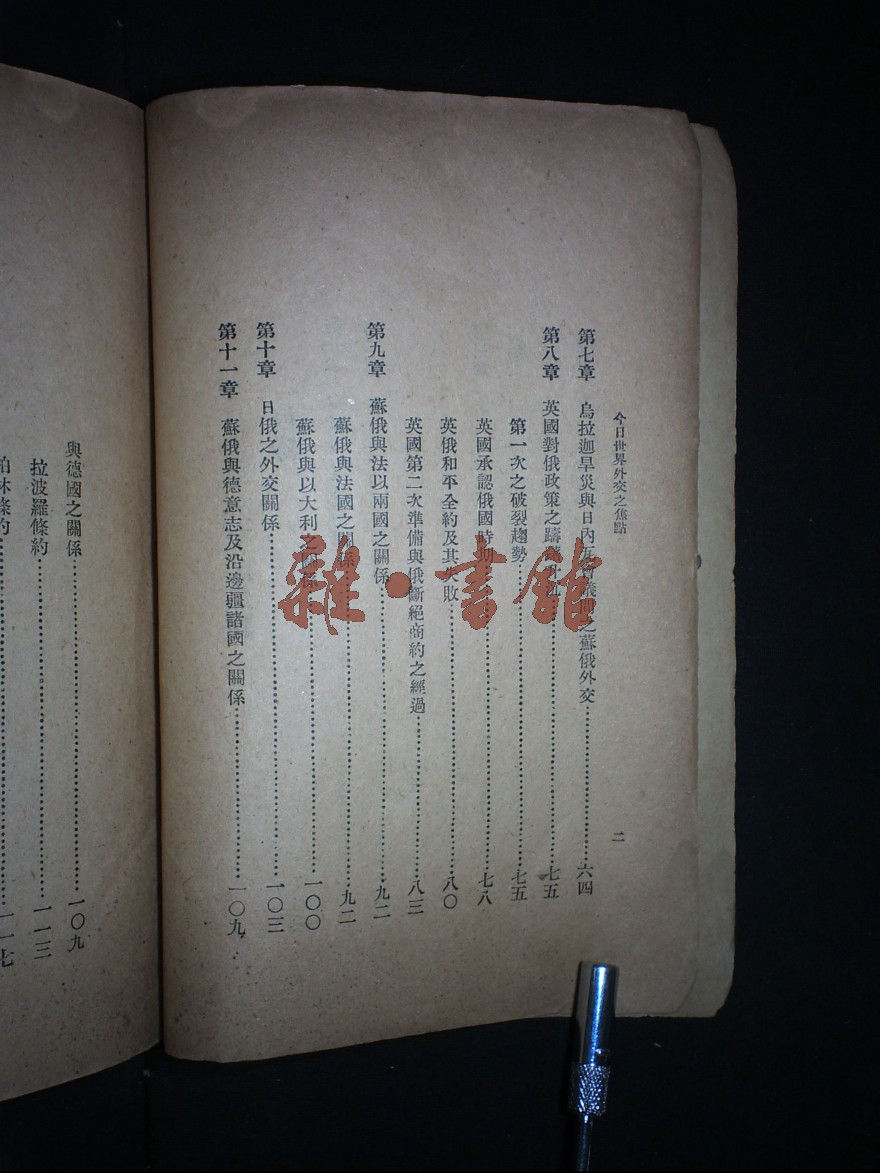 今日世界外交之焦點
二
第七章 烏拉迦旱災與日內瓦會議間之蘇俄外交 六四
第八章 英國對俄政策之躊躇 七五
第一次之破裂趨勢 七五
英國承認俄國時期 七八
英俄和平全約及其失敗 八〇
英國第二次準備與俄斷絕商約之經過 八三
第九章 蘇俄與法以兩國之關係 九二
蘇俄與法國之關係 九二
蘇俄與以大利之關係 一〇〇
第十章 日俄之外交關係 一〇三
第十一章 蘇俄與德意志及沿邊疆諸國之關係 一〇九
與德國之關係 一〇九
拉波羅條約 一一三
柏林條約 一一七
雜·書館